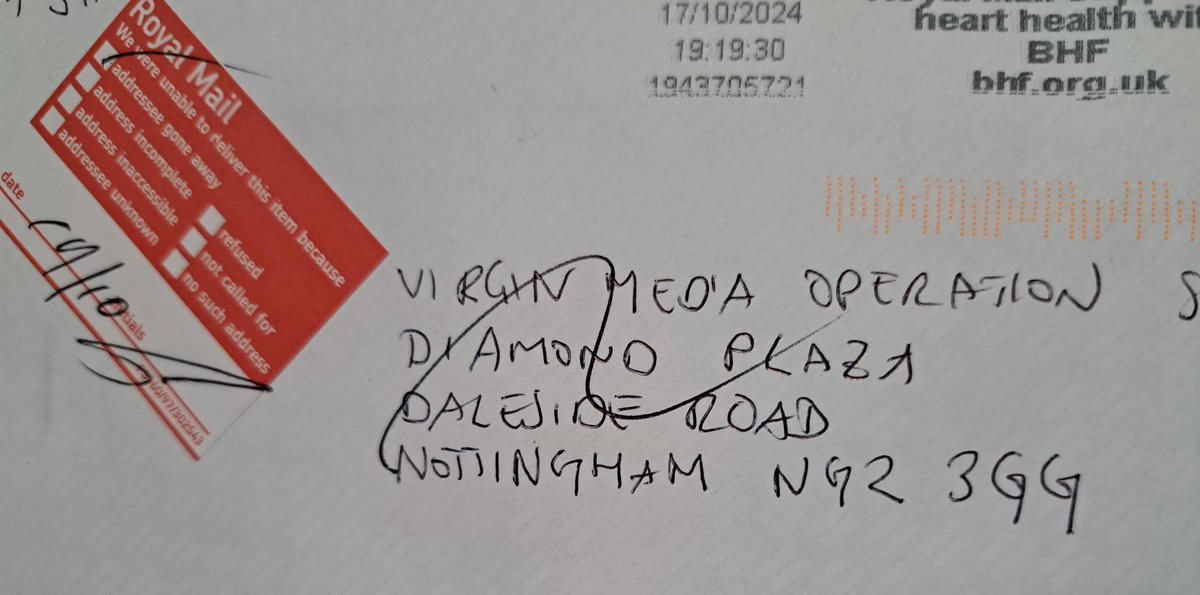 17/10/2024
19:19:30
1943705721
heart health wit
BHF
bhf.org.uk
Royal Mail
We were unable to deliver this item because
addressee gone away
address incomplete
address inaccessible
addressee unknown
refused
not called for
no such address
date
19/10
60/97/302543
VIRGIN MEDIA OPERATION S
DIAMOND PLAZA
DALESIDE ROAD
NOTTINGHAM NG2 3GG